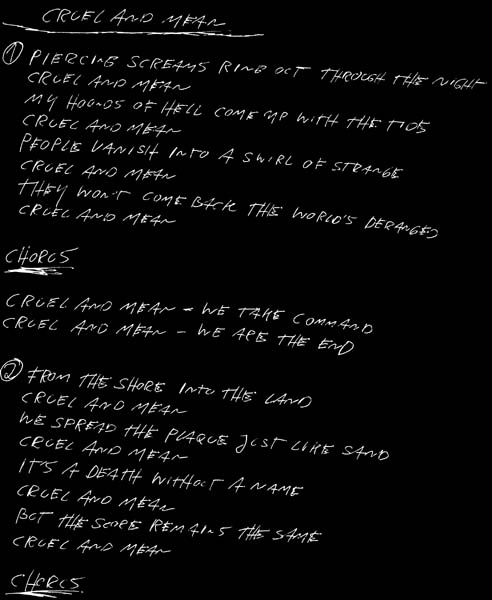 CRUEL AND MEAN
① PIERCING SCREAMS RING OUT THROUGH THE NIGHT
CRUEL AND MEAN
MY HOUNDS OF HELL COME UP WITH THE TIDE
CRUEL AND MEAN
PEOPLE VANISH INTO A SWIRL OF STRANGE
CRUEL AND MEAN
THEY WON'T COME BACK THE WORLD'S DERANGED
CRUEL AND MEAN
CHORUS
CRUEL AND MEAN - WE TAKE COMMAND
CRUEL AND MEAN - WE ARE THE END
② FROM THE SHORE INTO THE LAND
CRUEL AND MEAN
WE SPREAD THE PLAQUE JUST LIKE SAND
CRUEL AND MEAN
IT'S A DEATH WITHOUT A NAME
CRUEL AND MEAN
BUT THE SCORE REMAINS THE SAME
CRUEL AND MEAN
CHORUS